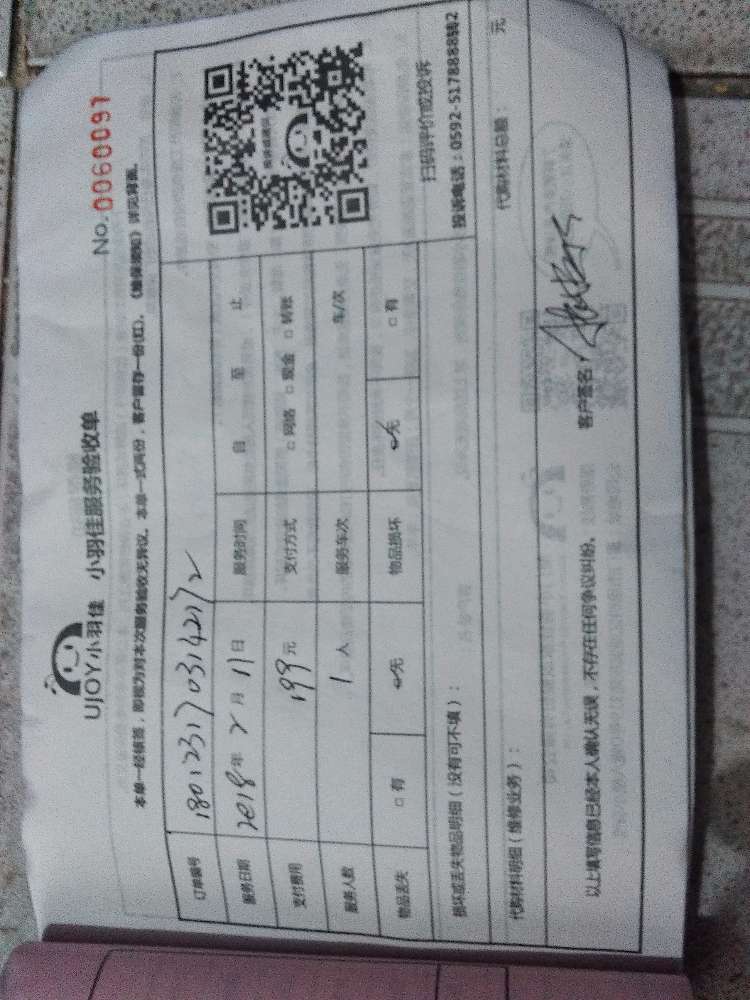 UJOY小羽佳 小羽佳服务验收单
No. 0060097
本单一经核签，即视为对本次服务验收无异议。本单一式两份，客户留存一份(红)。《维保须知》详见背面。
订单编号 180123170314212
服务日期 2018年 2月 11日 服务时间 自 至 止
支付费用 199元 支付方式 □ 网络 □ 现金 □ 转账
服务人数 1 人 服务车次 车/次
物品丢失 □ 有 无 物品损坏 无 □ 有
扫码评价或投诉
投诉电话：0592-5178888转2
损坏或丢失物品明细（没有可不填）：
代购材料明细（维修业务）： 代购材料总额： 元
以上填写信息已经本人确认无误，不存在任何争议纠纷。 客户签名：